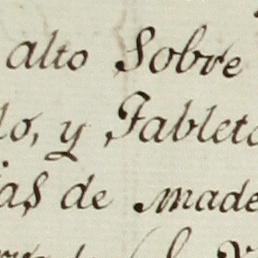 alto Sobre
lo, y Tableta
as de made